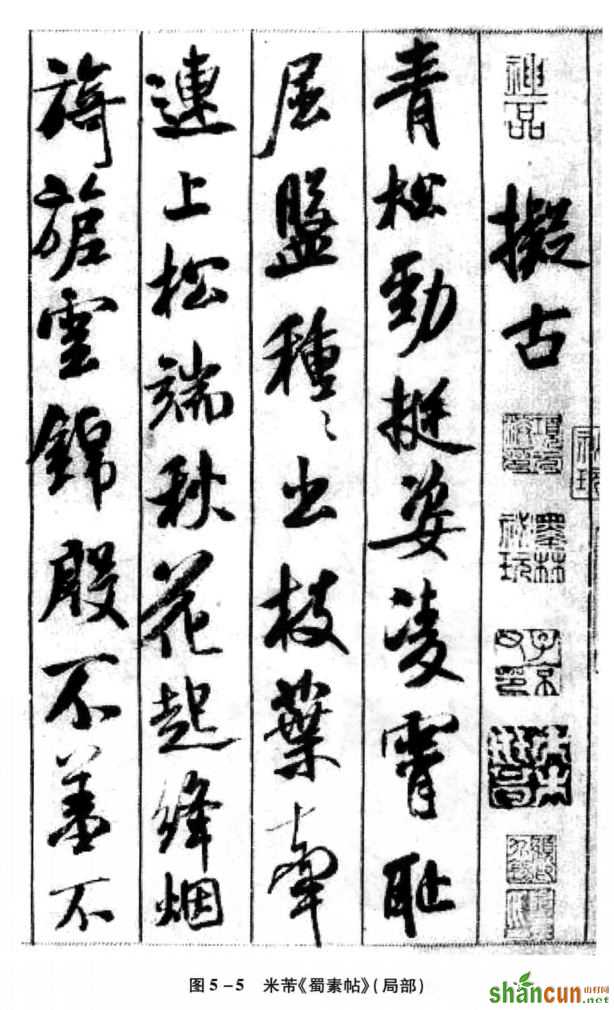 神品
擬古
青松勁挺姿凌霄恥
屈盤種〻出枝葉牽
連上松端秋花起絳烟
旖旎雲錦殷不羞不
图5-5 米芾《蜀素帖》(局部)
shancun.net
山村网